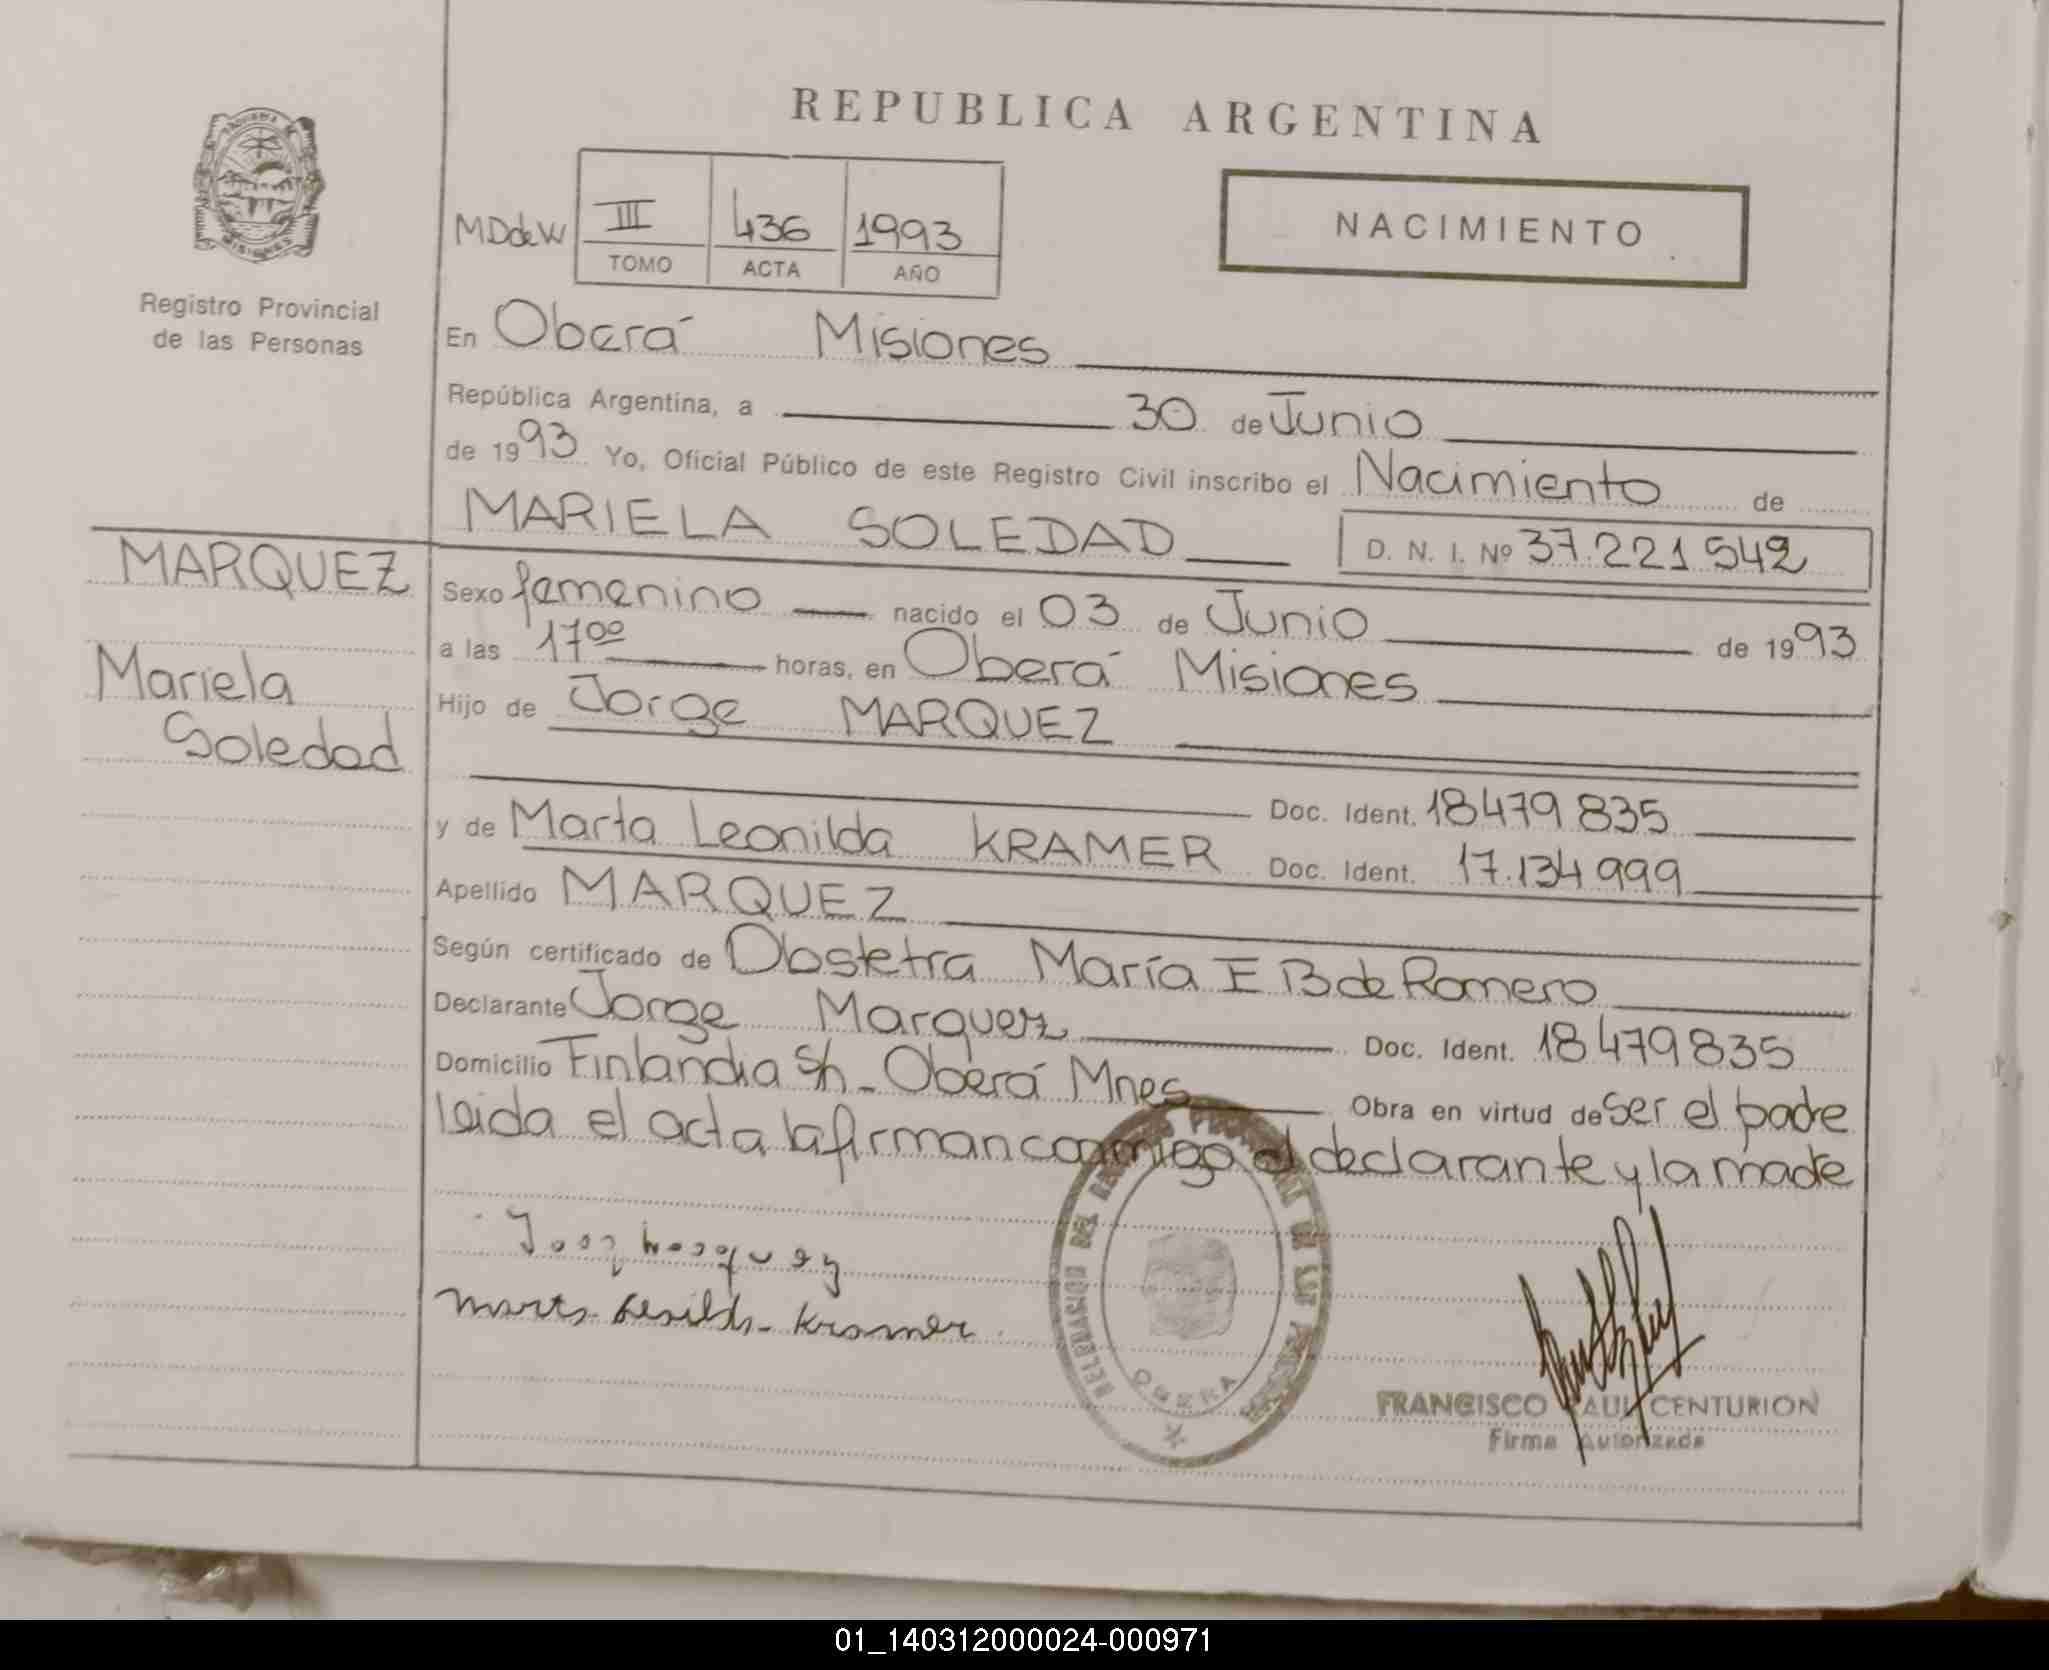 REPUBLICA ARGENTINA
MDdeW III 436 1993
TOMO ACTA AÑO
NACIMIENTO
PROVINCIA DE
MISIONES
Registro Provincial
de las Personas
En Oberá Misiones
República Argentina, a 30 de Junio
de 1993 Yo, Oficial Público de este Registro Civil inscribo el Nacimiento de
MARIELA SOLEDAD D. N. I. Nº 37.221.542
MARQUEZ
Mariela
Soledad
Sexo femenino nacido el 03 de Junio de 1993
a las 17 00 horas, en Oberá Misiones
Hijo de Jorge MARQUEZ
Doc. Ident. 18479835
y de Marta Leonilda KRAMER Doc. Ident. 17.134999
Apellido MARQUEZ
Según certificado de Obstetra María E B de Romero
Declarante Jorge Marquez Doc. Ident. 18479835
Domicilio Finlandia S/n - Oberá Mnes Obra en virtud de ser el padre
leida el acta la firman conmigo el declarante y la madre
Kramer
DELEGACION DEL PROVINCIAL DE LAS PERSONAS
OBERA
FRANCISCO RAUL CENTURION
Firma Autorizada
01_140312000024-000971